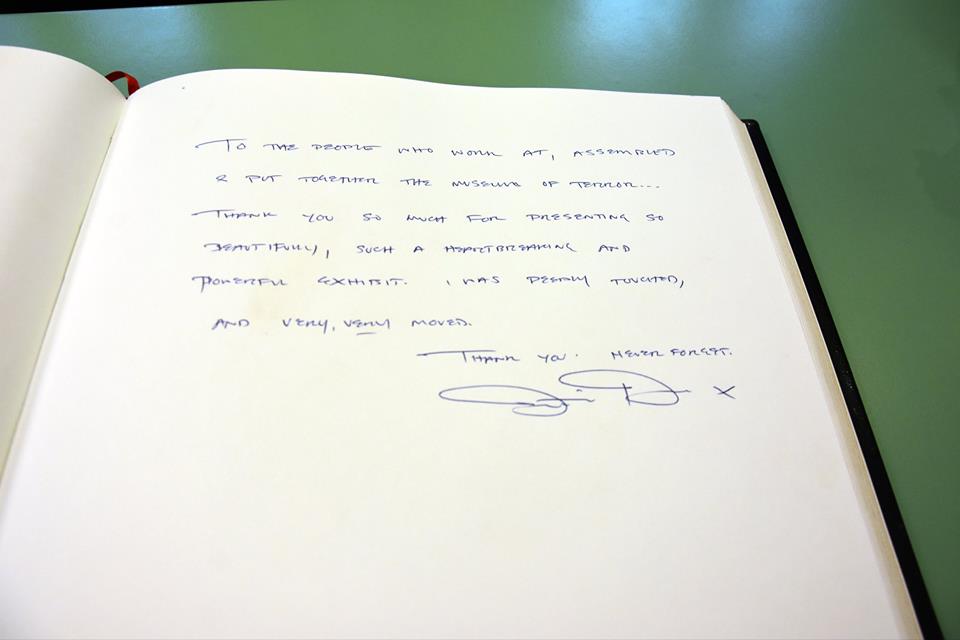 TO THE PEOPLE WHO WORK AT, ASSEMBLED
& PUT TOGETHER THE MUSEUM OF TERROR...
THANK YOU SO MUCH FOR PRESENTING SO
BEAUTIFULLY, SUCH A HEARTBREAKING AND
POWERFUL EXHIBIT. I WAS DEEPLY TOUCHED,
AND VERY, VERY MOVED.
THANK YOU. NEVER FORGET.
X